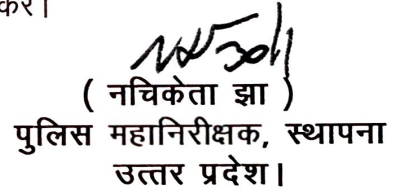 करें।
( नचिकेता झा )
पुलिस महानिरीक्षक, स्थापना
उत्तर प्रदेश।